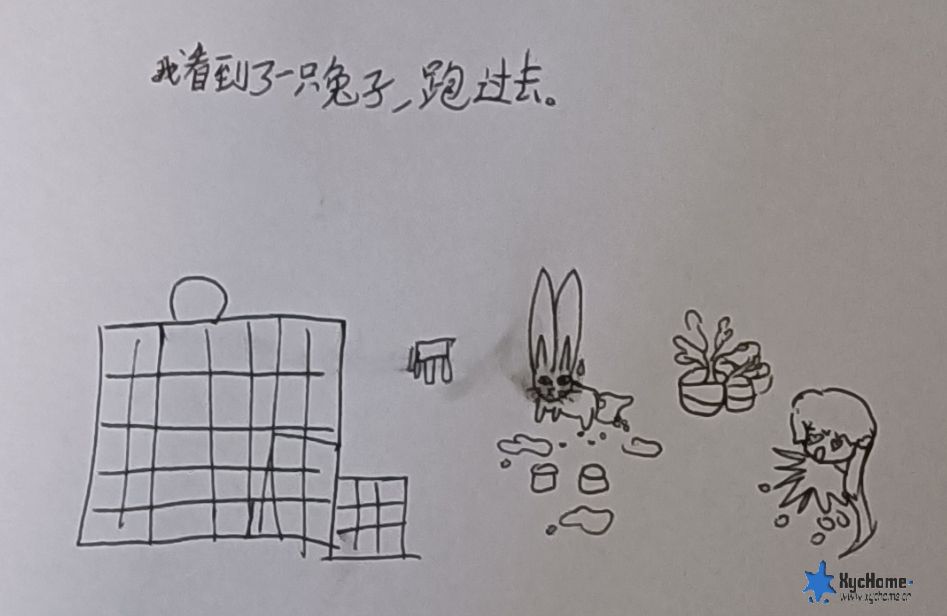 我看到了一只兔子,跑过去。
XycHome
www.xychome.cn